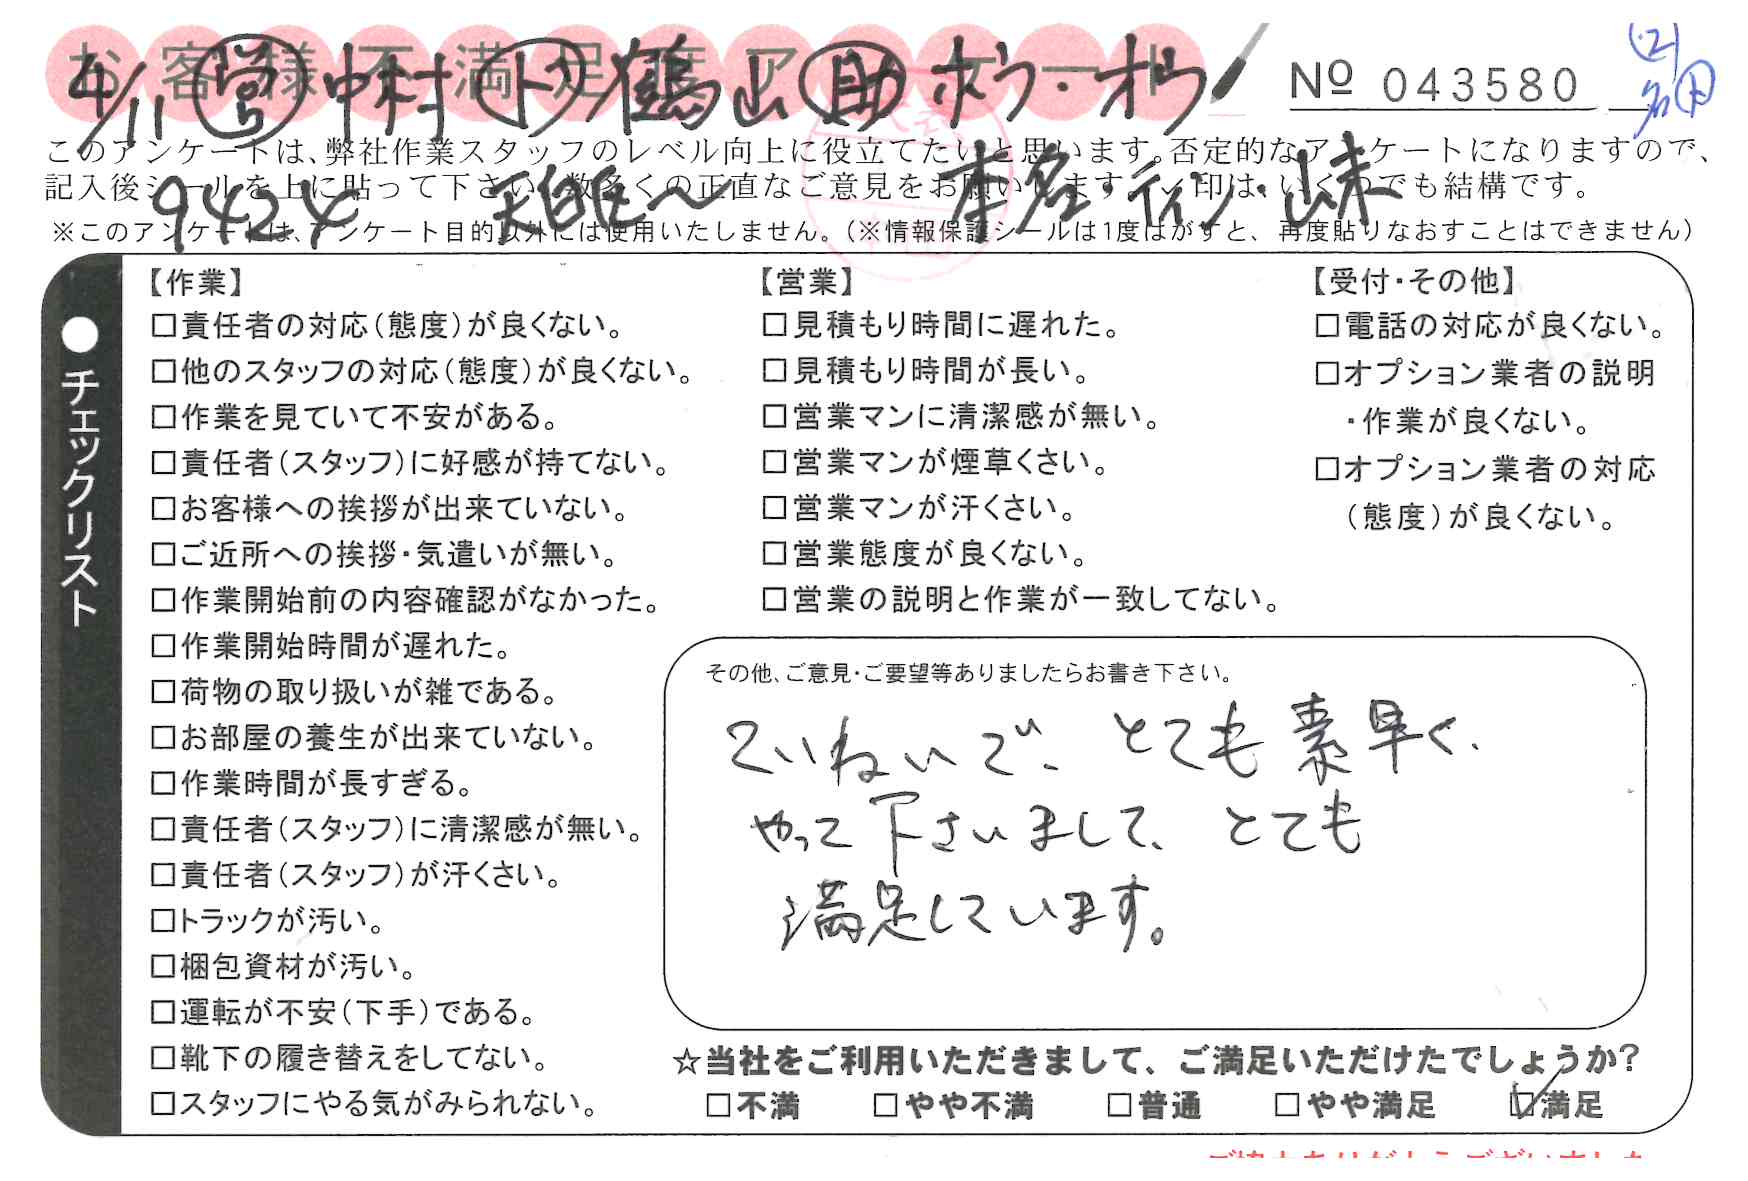 お客様不満足度アンケート
4/11 営 中村 ト 鶴山 助 ホウ・オウ
No 043580
(2)
このアンケートは、弊社作業スタッフのレベル向上に役立てたいと思います。否定的なアンケートになりますので、
記入後シールを上に貼って下さい。数多くの正直なご意見をお願いします。レ印は、いくつでも結構です。
9424 天白区〜
※このアンケートは、アンケート目的以外には使用いたしません。(※情報保護シールは1度はがすと、再度貼りなおすことはできません)
●チェックリスト
【作業】
□責任者の対応(態度)が良くない。
□他のスタッフの対応(態度)が良くない。
□作業を見ていて不安がある。
□責任者(スタッフ)に好感が持てない。
□お客様への挨拶が出来ていない。
□ご近所への挨拶・気遣いが無い。
□作業開始前の内容確認がなかった。
□作業開始時間が遅れた。
□荷物の取り扱いが雑である。
□お部屋の養生が出来ていない。
□作業時間が長すぎる。
□責任者(スタッフ)に清潔感が無い。
□責任者(スタッフ)が汗くさい。
□トラックが汚い。
□梱包資材が汚い。
□運転が不安(下手)である。
□靴下の履き替えをしてない。
□スタッフにやる気がみられない。
【営業】
□見積もり時間に遅れた。
□見積もり時間が長い。
□営業マンに清潔感が無い。
□営業マンが煙草くさい。
□営業マンが汗くさい。
□営業態度が良くない。
□営業の説明と作業が一致してない。
【受付・その他】
□電話の対応が良くない。
□オプション業者の説明
・作業が良くない。
□オプション業者の対応
(態度)が良くない。
その他、ご意見・ご要望等ありましたらお書き下さい。
ていねいで、とても素早く、
やって下さいまして、とても
満足しています。
☆当社をご利用いただきまして、ご満足いただけたでしょうか?
□不満 □やや不満 □普通 □やや満足 ☑満足
ご協力ありがとうございました